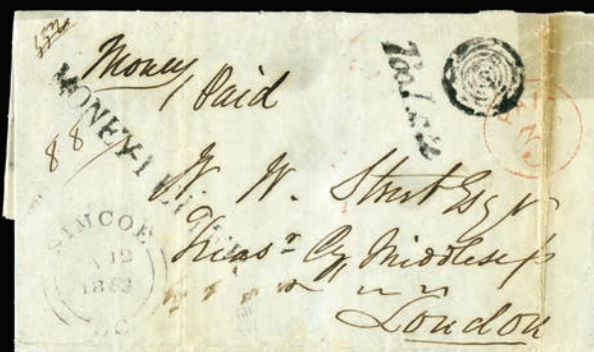 Money
Paid
MONEY-LETTER
88
W. W. Street Esqr
Treasr Cy Middlesex
London
SIMCOE
12
1853